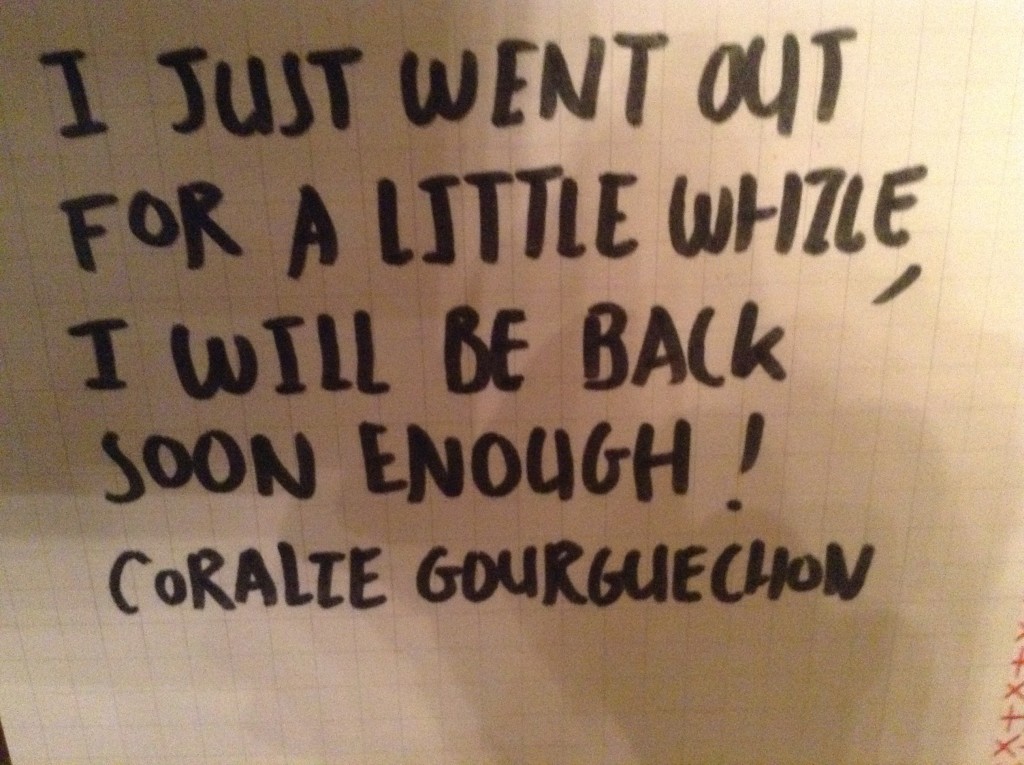 I JUST WENT OUT
FOR A LITTLE WHILE,
I WILL BE BACK
SOON ENOUGH !
CORALIE GOURGUECHON
X+X+X